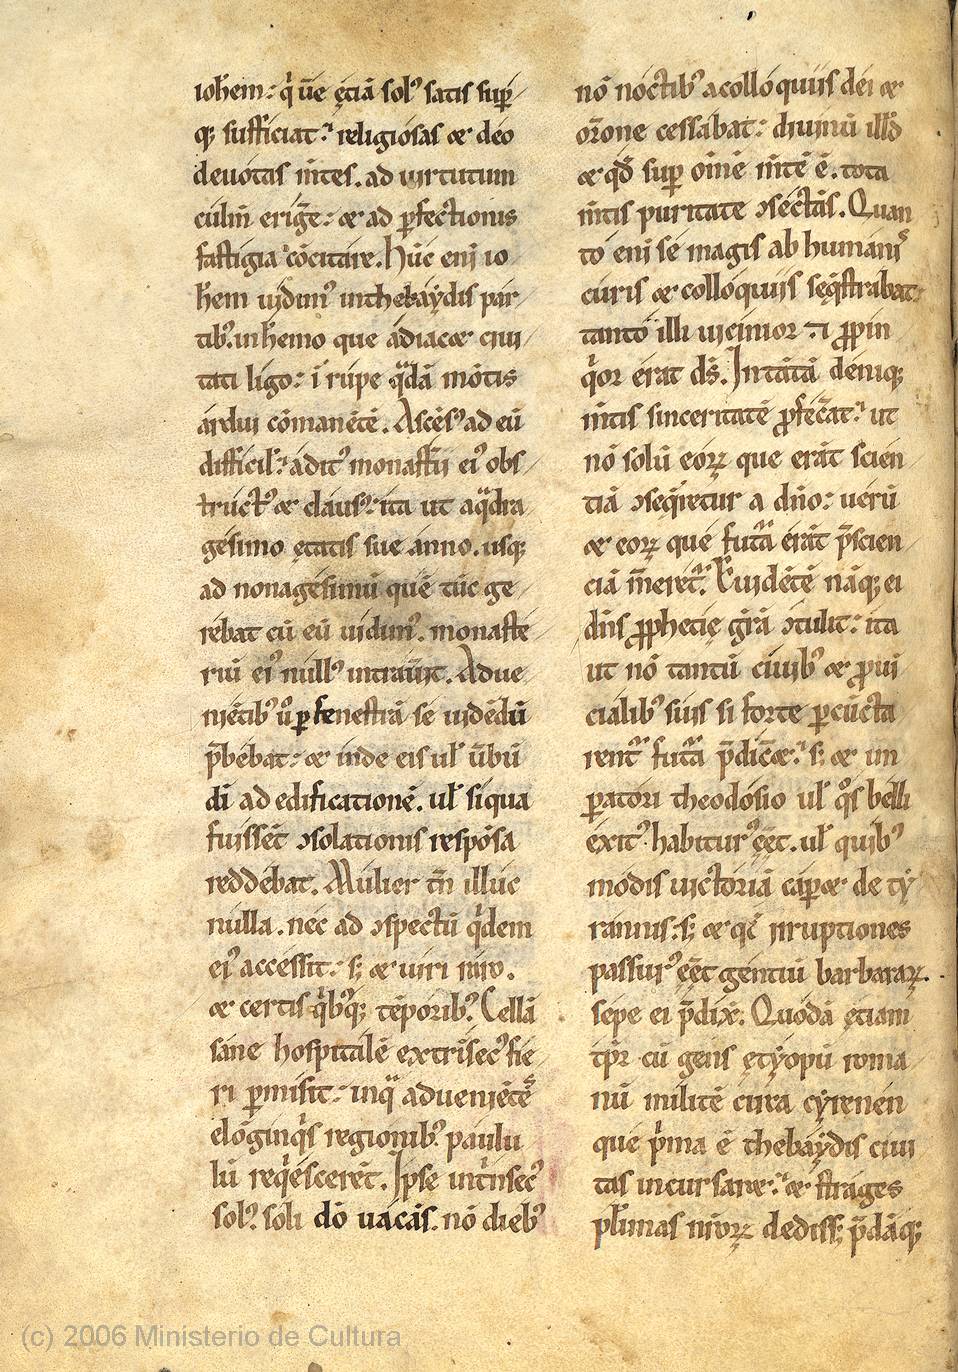 ioh̄em: qͥ ūe ęciā sol᷒ satis sup̲
q; sufficiat: religiosas & deo
deuotas m̄tes. ad uirtutum
culm̄ eriḡe: & ad ꝑfectionis
fastigia cōcitare. hūc enī io
h̄em uidim᷒ in thebaydis par
tib᷒. in h̄emo que adiac& ciui
tati ligo: ī rupe qᵃdā mōtis
ardui cōmanētē. Ascēs᷒ ad eū
difficil᷒: adit᷒ monastīi ei᷒ obs
truct᷒ & claus᷒: ita ut aqᵃdra
gesimo ętatis sue anno. usq;
ad nonagesimū quē tūc ge
rebat cū eū uidim᷒. monaste
riū ei᷒ null᷒ intrauīt. Adue
niētib᷒ ů ꝑ fenestrā se uidēdū
p̄bebat: & inde eis ul̄ ūbū
dī ad edificationē. ul̄ siqua
fuissēt ↄsolationis respōsa
reddebat. Mulier tn̄ illuc
nulla. nec ad ↄspectū qͥdem
ei᷒ accessit: s; & uiri raro.
& certis qͥb᷒q; tēporib᷒. Cellā
sane hospitalē extrīsec᷒ fie
ri ꝑmisit: inqᵃ aduenietēˢ
elōginqͥs regionib᷒ paulu
lū reqͥescerēt. Ipse intͥnsec᷒
sol᷒ soli dō uacās. nō dieb᷒
nō noctib᷒ acolloquiis dei &
or̄one cessabat: diuinū ill̄d
& qd̄ sup̲ om̄nē m̄tē ē. tota
m̄tis puritate ↄsectās. Quan
to enī se magis ab humanīˢ
curis & colloquiis seqͥstrabat:
tanto illi uicinior ⁊ ꝓpin
qͥor erat dṡ. Intātā deniq;
m̄tis sinceritatē ꝓfecat: ut
nō solū eoꝝ que erāt scien
tiā ↄseqͥretur a dn̄o: uerū
& eoꝝ que futᵃa erāt p̄scien
ciā m̄eret᷒. Euidētē nāq; ei
dn̄s ꝓphecię gr̄a ↄtulit: ita
ut nō tantū ciuib᷒ & ꝓuī
cialib᷒ suis si forte ꝑcūcta
rent᷒ futᵃa p̄dic̄&: s; & im
ꝑatori theodosio ul̄ qͦs belli
exit᷒ habitur᷒ ęęt. ul̄ quib᷒
modis uictoriā cap̲& de ty
rannis: s; & qͣs irruptiones
passur᷒ ęęt gentiū barbaraꝝ.
sepe ei p̄dix̄. Quodā ęciam
tp̄r cū gens ętyopū roma
nū militē circa cyrenen
que pͥma ē thebaydis ciui
tas incursare: & strages
pl̄imas nr̄oꝝ dediss; p̄dāq;
(c) 2006 Ministerio de Cultura